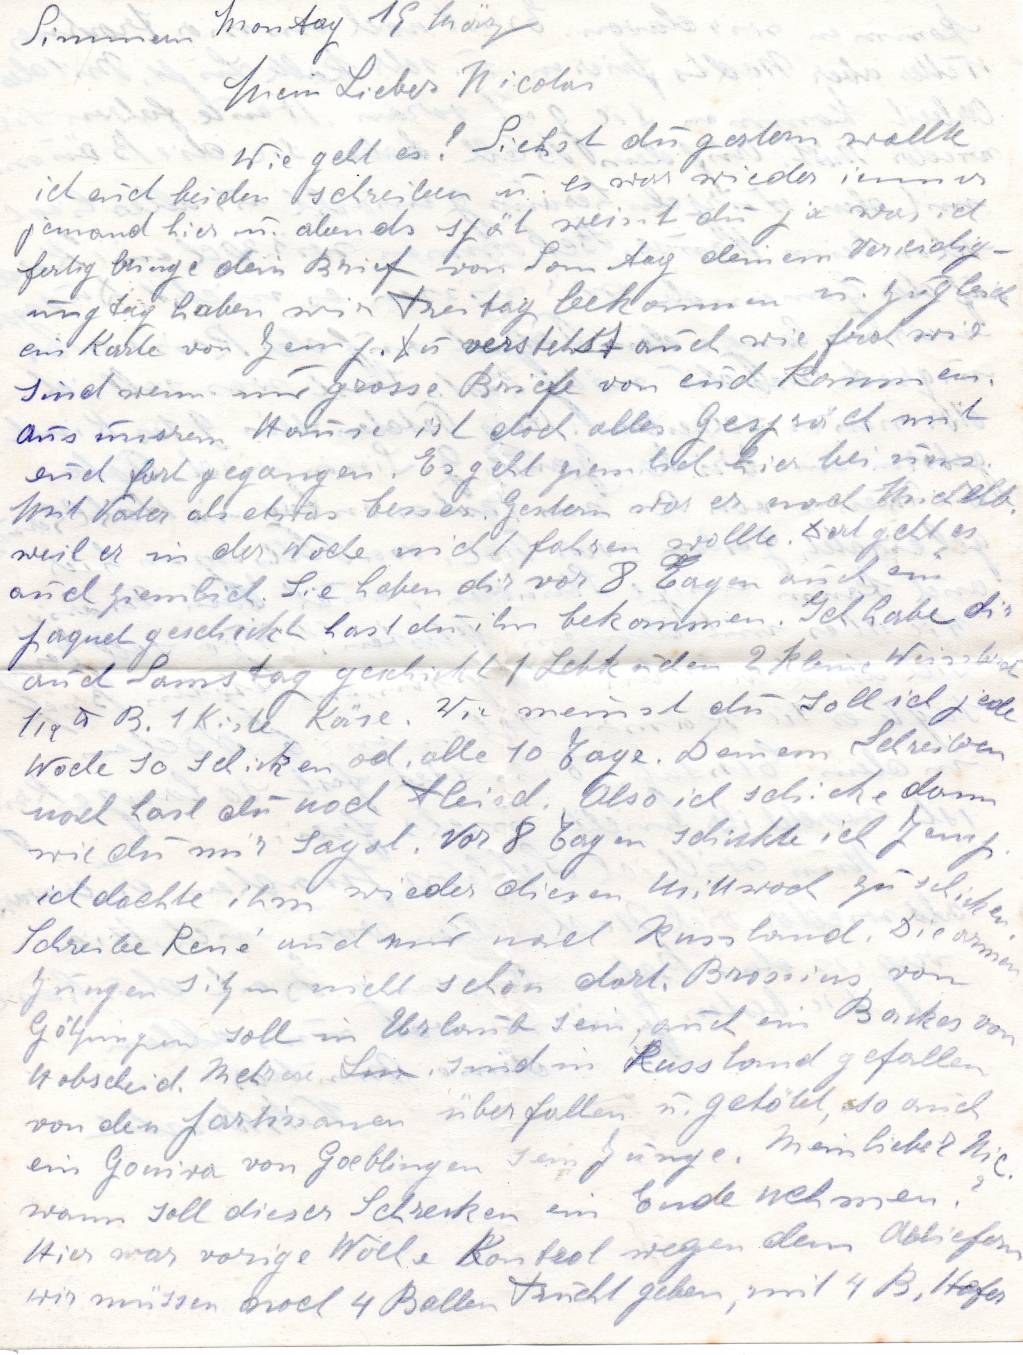 Simmern Montag 15 März
Mein Lieber Nicolas
Wie geht es? Siehst du gestern wollte
ich euch beiden schreiben u. es war wieder immer
jemand hier u. abends spät weist du ja was ich
fertig bringe dein Brief von Sonntag deinem Vereidig-
ungstag haben wir Freitag bekommen u. zugleich
ein Karte von Jemp. Du verstehst auch wie froh wir
sind wenn nur grosse Briefe von euch kommen.
Aus unserem Hause ist doch alles Gespräch mit
euch fort gegangen. Es geht ziemlich hier bei uns.
Mit Vater als etwas besser. Gestern war er nach
weil er in der Woche nicht fahren wollte. Dort geht es
auch ziemlich. Sie haben dir vor 8 Tagen auch ein
paquet geschickt hast du ihn bekommen. Ich habe dir
auch Samstag geschickt 1 Lebkuchen 2 kleine
1/4 ℔ B. 1 Kiste Käse. Wie meinst du soll ich jede
Woche so schicken od. alle 10 Tage. Deinem Schreiben
nach hast du noch Fleisch. Also ich schicke dann
wie du mir sagst. Vor 8 Tagen schickte ich Jemp.
ich dachte ihm wieder diesen Mittwoch zu schicken.
Schreibe René auch mir nach Russland. Die armen
Jungen sitzen nicht schön dort. Brosius von
Götzingen soll in Urlaub sein, auch ein Backes von
Hobscheid. Mehrere sind in Russland gefallen
von den Partisanen überfallen u. getötet, so auch
ein von Goeblingen sein Junge. Mein lieber Nic.
wann soll dieser Schrecken ein Ende nehmen?
Hier war vorige Woche Kontrol wegen dem Abliefern
wir müssen noch 4 Ballen Frucht geben, mit 4 B. Hafer